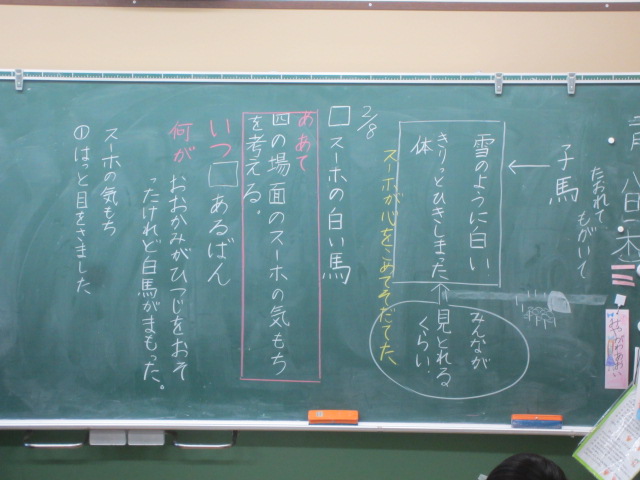 たおれて
もがいて
子馬
←
雪のように白い
きりっとひきしまった
体
みんなが
見とれる
くらい
スーホが心をこめてそだてた
2/8
□スーホの白い馬
めあて
四の場面のスーホの気もち
を考える。
いつ□あるばん
何が おおかみがひつじをおそ
ったけれど白馬がまもった。
スーホの気もち
①はっと目をさました